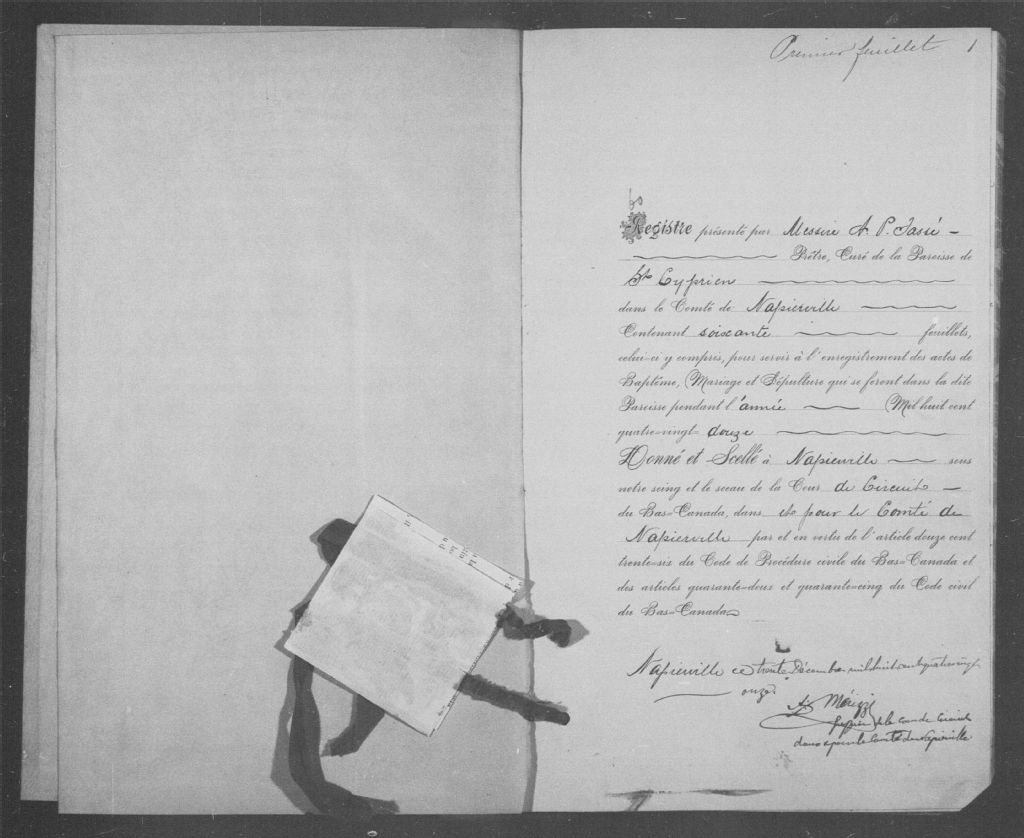 Premier feuillet 1
Registre présenté par Messire A. P. Tassé
Prêtre, Curé de la Paroisse de
St Cyprien
dans le Comté de Napierville
Contenant soixante feuillets,
celui-ci y compris, pour servir à l'enregistrement des actes de
Baptême, Mariage et Sépulture qui se feront dans la dite
Paroisse pendant l'année Mil huit cent
quatre-vingt-douze
Donné et Scellé à Napierville sous
notre seing et le sceau de la Cour de Circuit
du Bas-Canada, dans et pour le Comté de
Napierville par et en vertu de l'article douze cent
trente-six du Code de Procédure civile du Bas-Canada et
des articles quarante-deux et quarante-cinq du Code civil
du Bas-Canada
Napierville ce trente Décembre mil huit cent quatre vingt
onze.
greffier de la cour de Circuit
dans et pour le Comté de Napierville